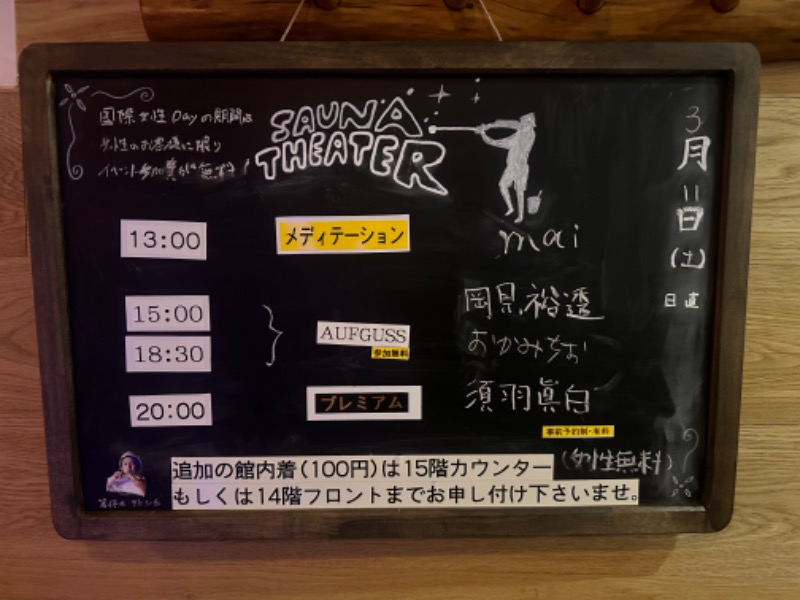 国際女性Dayの期間は
女性のお客様に限り
イベント参加費が無料!
SAUNA
THEATER
3月11日(土)
日直
13:00 メディテーション mai
15:00
18:30
AUFGUSS
参加無料
おゆみちお
20:00 プレミアム 須羽眞白
事前予約制・有料
(女性無料)
追加の館内着(100円)は15階カウンター
もしくは14階フロントまでお申し付け下さいませ。